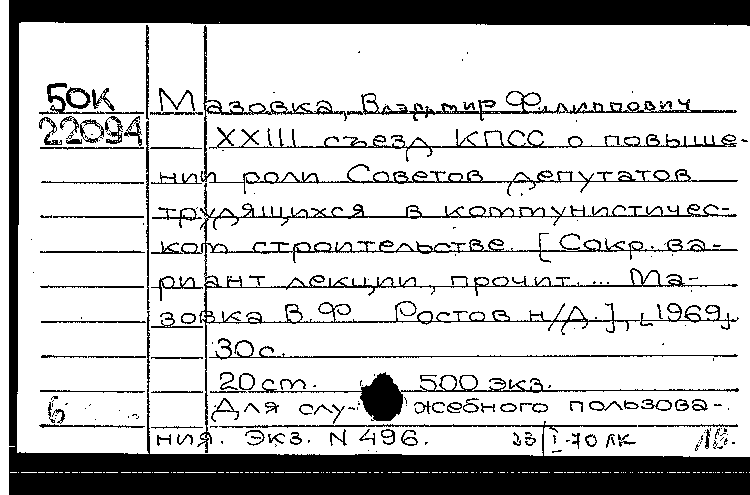 50К Мазовка, Владимир Филиппович
22094 XXIII съезд КПСС о повыше-
нии роли Советов депутатов
трудящихся в коммунистичес-
ком строительстве. [Сокр. ва-
риант лекции, прочит.... Ма-
зовка В.Ф. Ростов н/Д.], [1969]
30с.
20 ст. 500 экз.
6 Для слу-жебного пользова-
ния. Экз. N 496. 23/I-70 ЛК